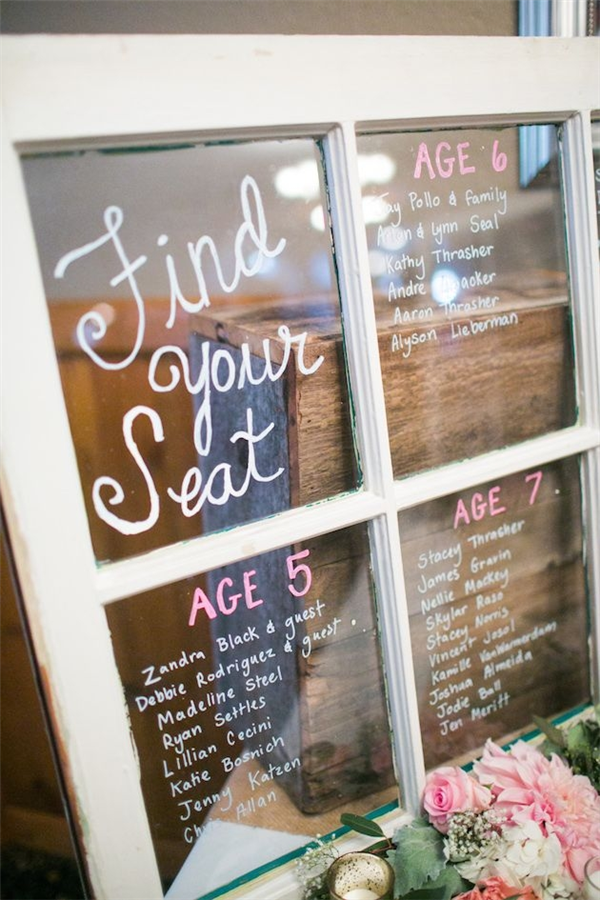 Find
Your
Seat
AGE 6
Jay Pollo & family
& Lynn Seal
Kathy Thrasher
Andre
Aaron Thrasher
Alyson Lieberman
AGE 5
Zandra Black & guest
Debbie Rodriguez & guest.
Madeline Steel
Ryan Settles
Lillian Cecini
Katie Bosnich
Jenny Katzen
Allan
AGE 7
Stacey Thrasher
James Gravin
Nellie Mackey
Skylar Raso
Stacey Norris
Vincent
Kamille VanWarmerdam
Joshua Almeida
Jodie Ball
Jen Meritt